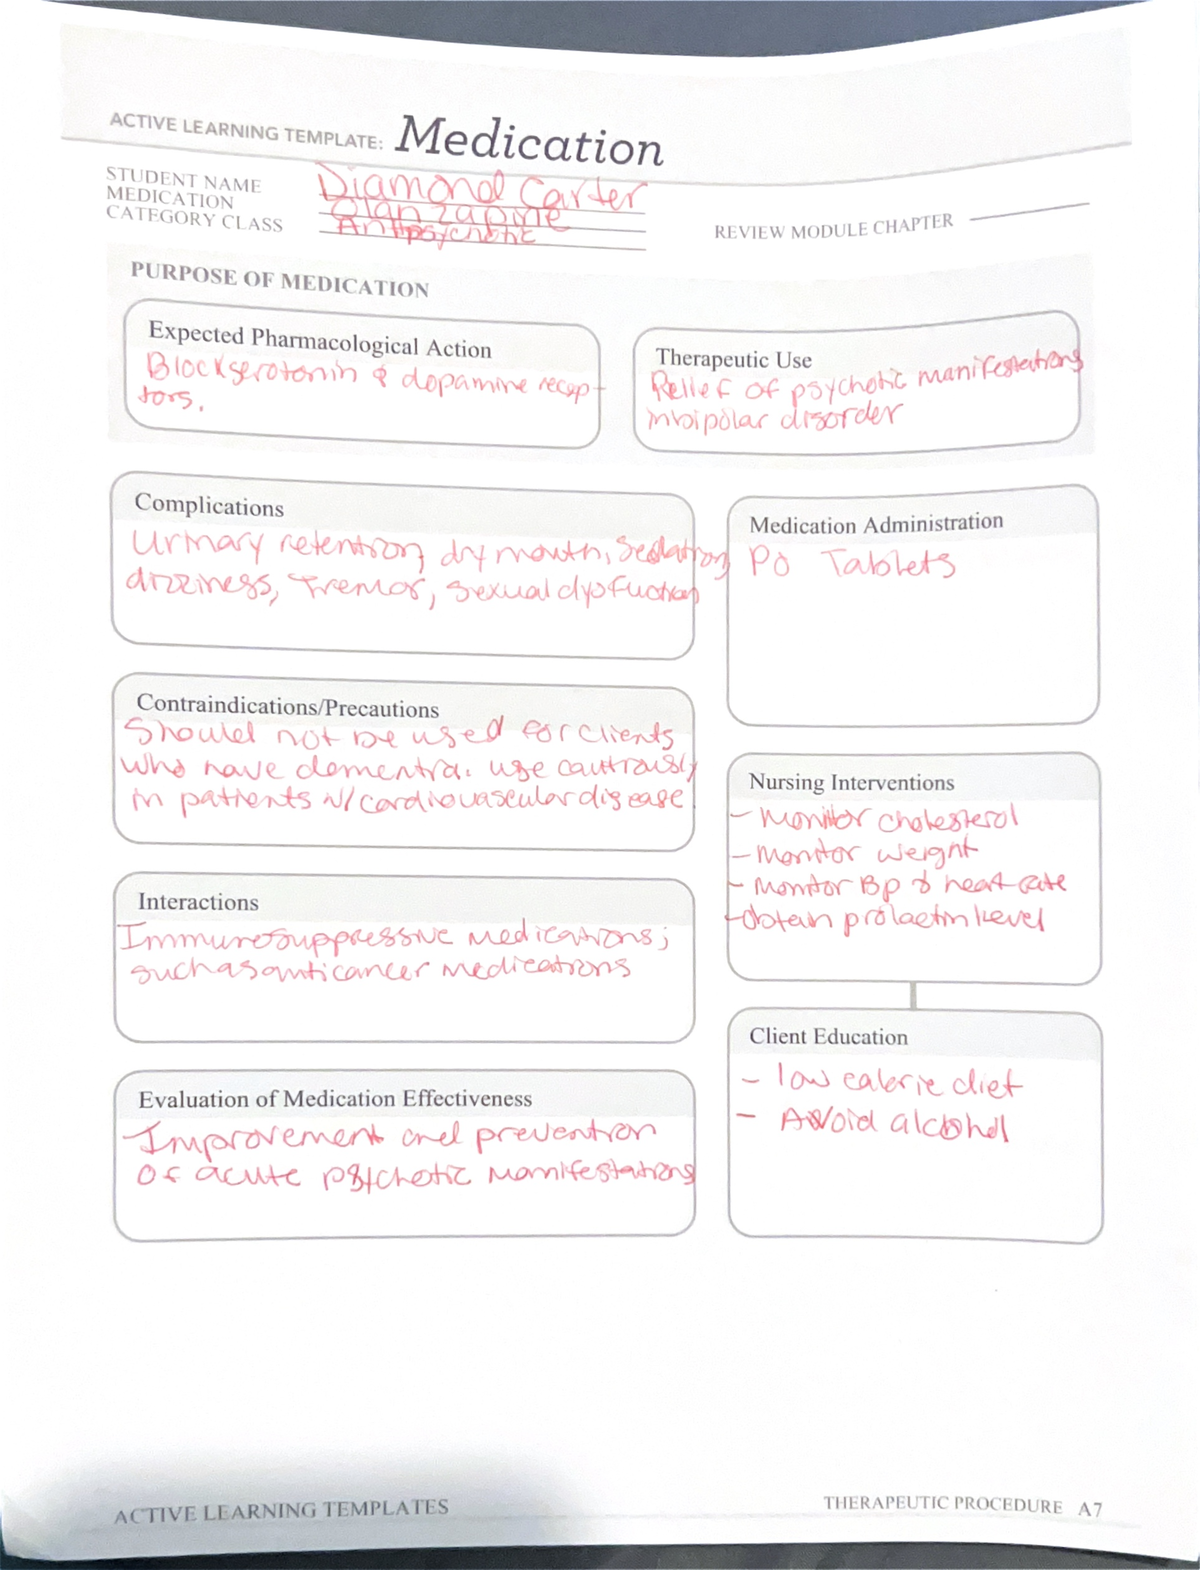 ACTIVE LEARNING TEMPLATE: Medication
STUDENT NAME Diamond Carter
MEDICATION Olanzapine
CATEGORY CLASS Antipsychotic
REVIEW MODULE CHAPTER
PURPOSE OF MEDICATION
Expected Pharmacological Action
Block serotonin & dopamine recep-
tors.
Therapeutic Use
Relief of psychotic manifestations
in bipolar disorder
Complications
Urinary retention, dry mouth, Sedation,
dizziness, Tremor, sexual dysfuction
Medication Administration
PO Tablets
Contraindications/Precautions
Should not be used for clients
who have dementia. use cautiously
in patients w/cardiovascular disease
Nursing Interventions
- Monitor cholesterol
- Monitor weight
- Monitor BP & heart rate
- obtain prolactin level
Interactions
Immunosuppressive Medications;
such as anticancer Medications
Client Education
- low calorie diet
- Avoid alcohol
Evaluation of Medication Effectiveness
Improvement and prevention
Of acute psychotic manifestations
ACTIVE LEARNING TEMPLATES
THERAPEUTIC PROCEDURE A7